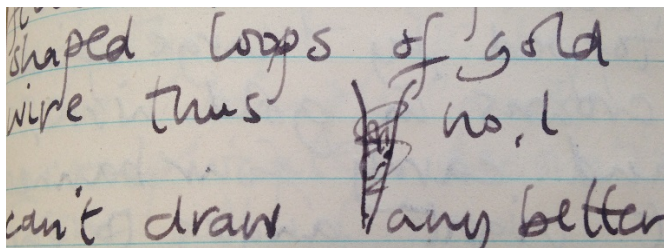 shaped loops of gold
wire thus no, I
can't draw any better